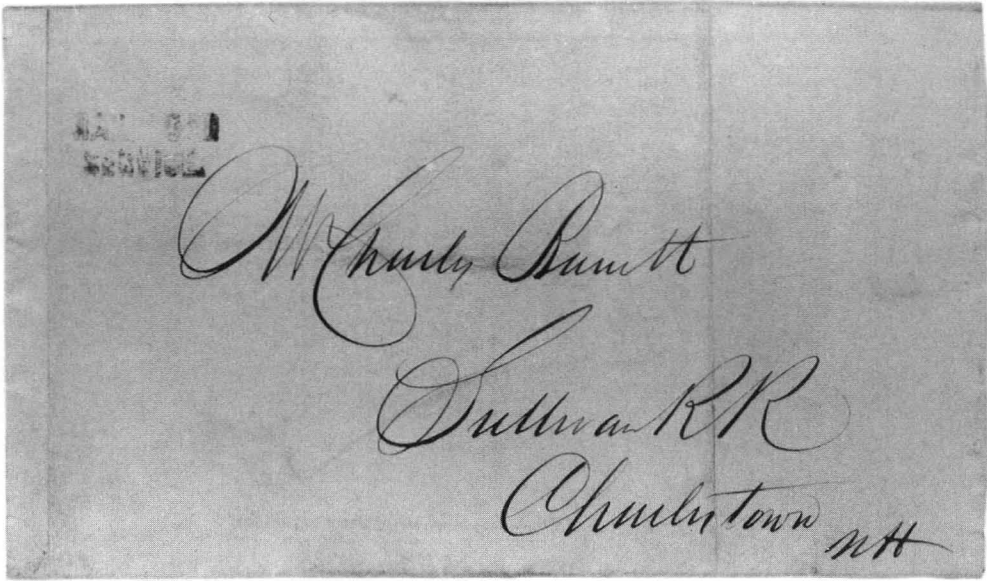 SERVICE
Mr Charles Barrett
Sullivan RR
Charlestown
NH